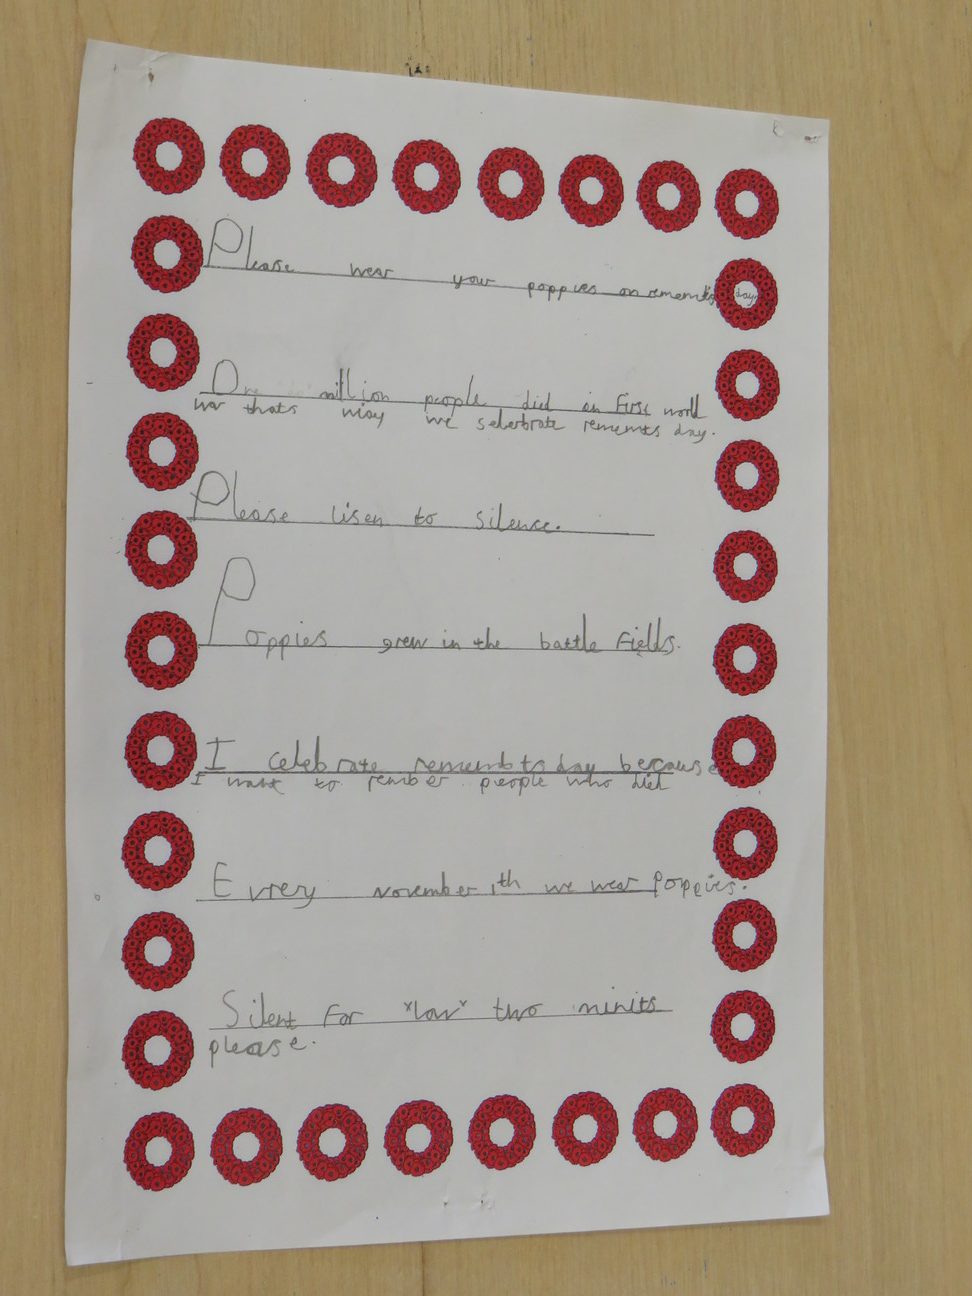 Please wear your poppies on rememts day
One million people died in first world
war thats way we selerbrate rememts day.
Please lisen to silence.
Poppies grew in the battle fields.
I celebrate rememts day because
I want to rember people who died
Evrey november 11th we wear poppies.
Silent for "low" two minits
please.